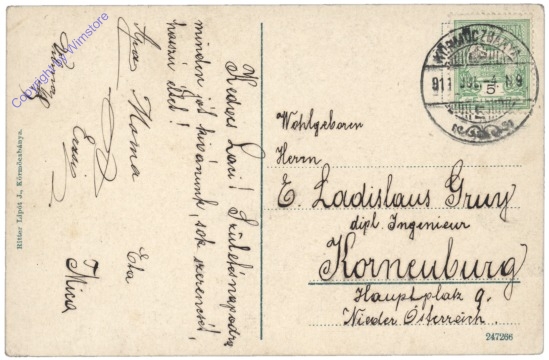 Kedves Laci! Születésnapodra
minden jót kivánunk, sok szerencsét,
hosszú élet!
Apa Mama
Erzsi
Eta
Mica
Ritter Lipót J., Körmöczbánya.
Copyright by Wimstore
KÖRMÖCZBÁNYA
911
Wohlgeboren
Herrn
E. Ladislaus Gruy
dipl. Ingenieur
Korneuburg
Hauptplatz 9.
Nieder Österreich.
247266